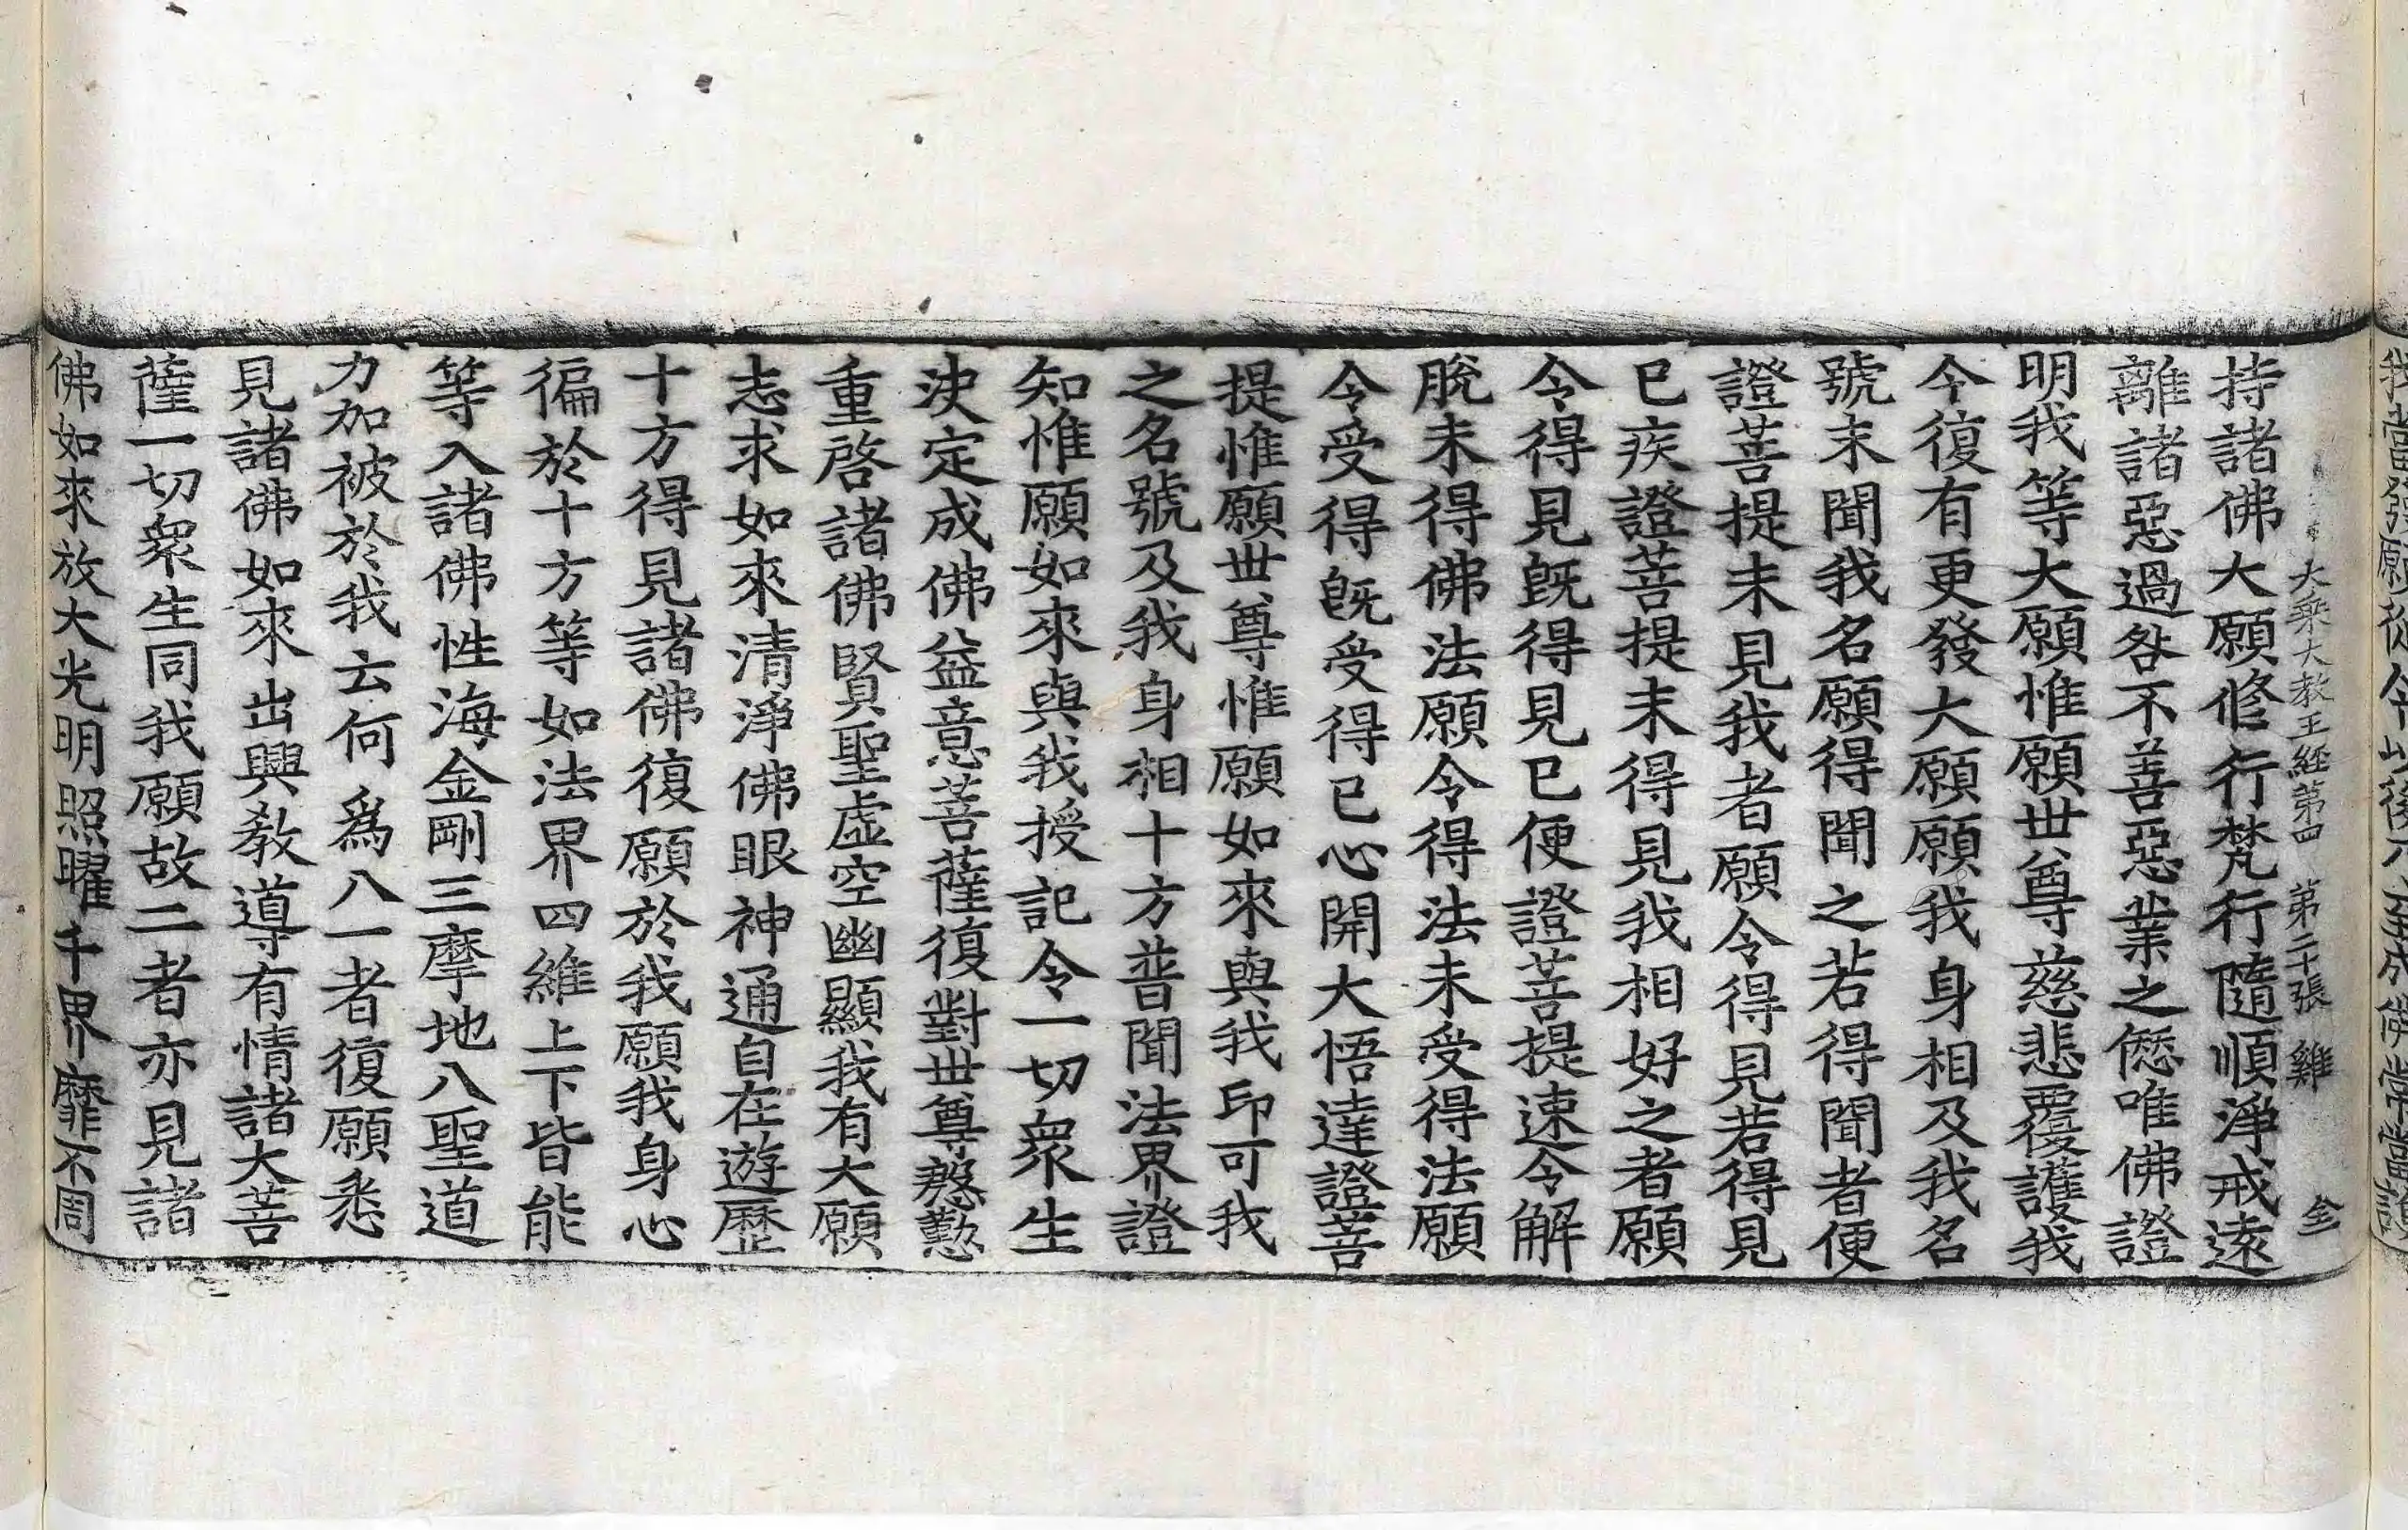 大乘大教王經第四 第二十張 雞 金
持諸佛大願修行梵行隨順淨戒遠
離諸惡過咎不善惡業之愆唯佛證
明我等大願惟願世尊慈悲覆護我
今復有更發大願願我身相及我名
號未聞我名願得聞之若得聞者便
證菩提未見我者願令得見若得見
已疾證菩提未得見我相好之者願
令得見既得見已便證菩提速令解
脫未得佛法願令得法未受得法願
令受得既受得已心開大悟達證菩
提惟願世尊惟願如來與我印可我
之名號及我身相十方普聞法界證
知惟願如來與我授記令一切衆生
決定成佛益意菩薩復對世尊慇懃
重啓諸佛賢聖虛空幽顯我有大願
志求如來清淨佛眼神通自在遊歷
十方得見諸佛復願於我願我身心
徧於十方等如法界四維上下皆能
等入諸佛性海金剛三摩地八聖道
力加被於我云何爲八一者復願悉
見諸佛如來出興敎導有情諸大菩
薩一切衆生同我願故二者亦見諸
佛如來放大光明照曜千界靡不周